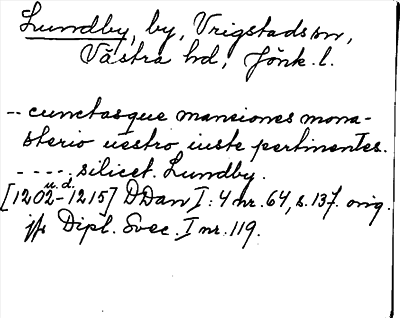 Lundby, by, Vrigstads sn,
Västra hd, Jönk. l.
-- cunctasque mansiones mona-
sterio uestro iuste pertinentes.
- - - -, silicet. Lundby.
u. d.
[1202-1215] DDan I: 4 nr. 64, s. 137. orig.
jfr Dipl. Svec. I nr. 119.